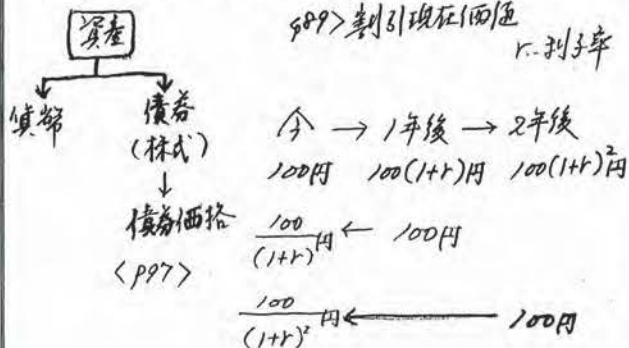 資産
貨幣
債券
(株式)
↓
債券価格
<P97>
P89>割引現在価値
r…利子率
今 → 1年後 → 2年後
100円 100(1+r)円 100(1+r)²円
100/(1+r) 円 ← 100円
100/(1+r)² 円 ← 100円